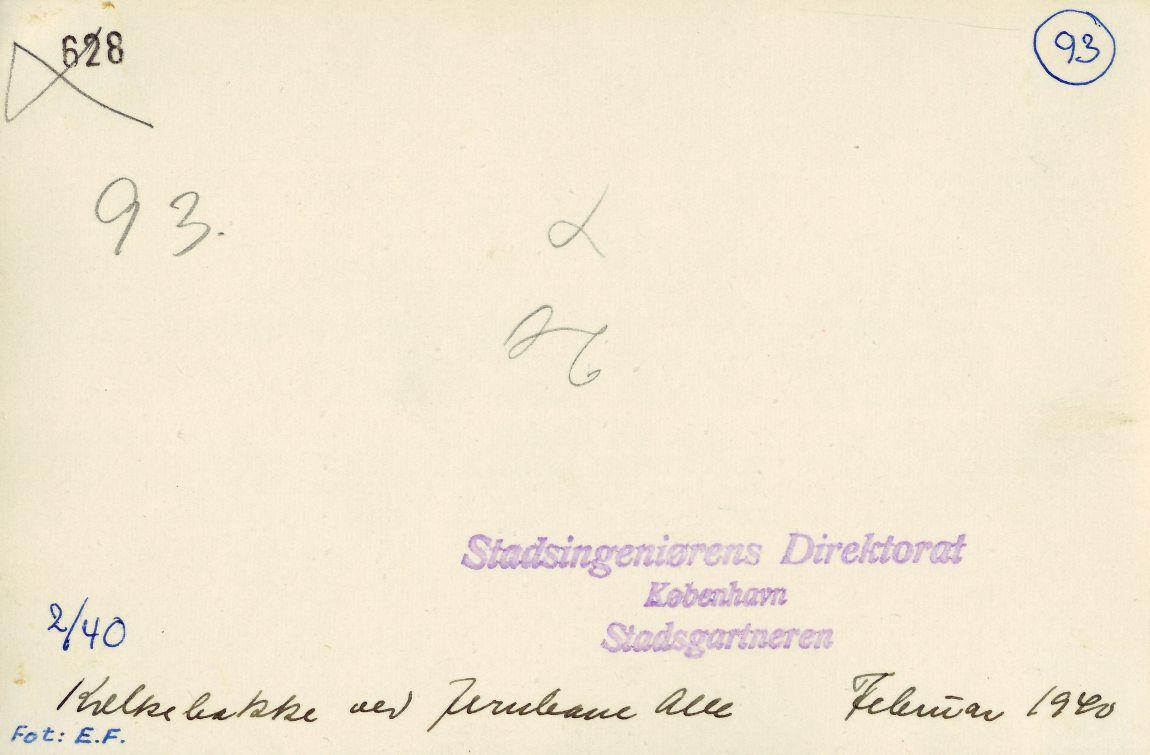 628
93
93.
Stadsingeniørens Direktorat
København
Stadsgartneren
2/40
Kælkebakke ved Jernbane Alle Februar 1940
Fot: E.F.